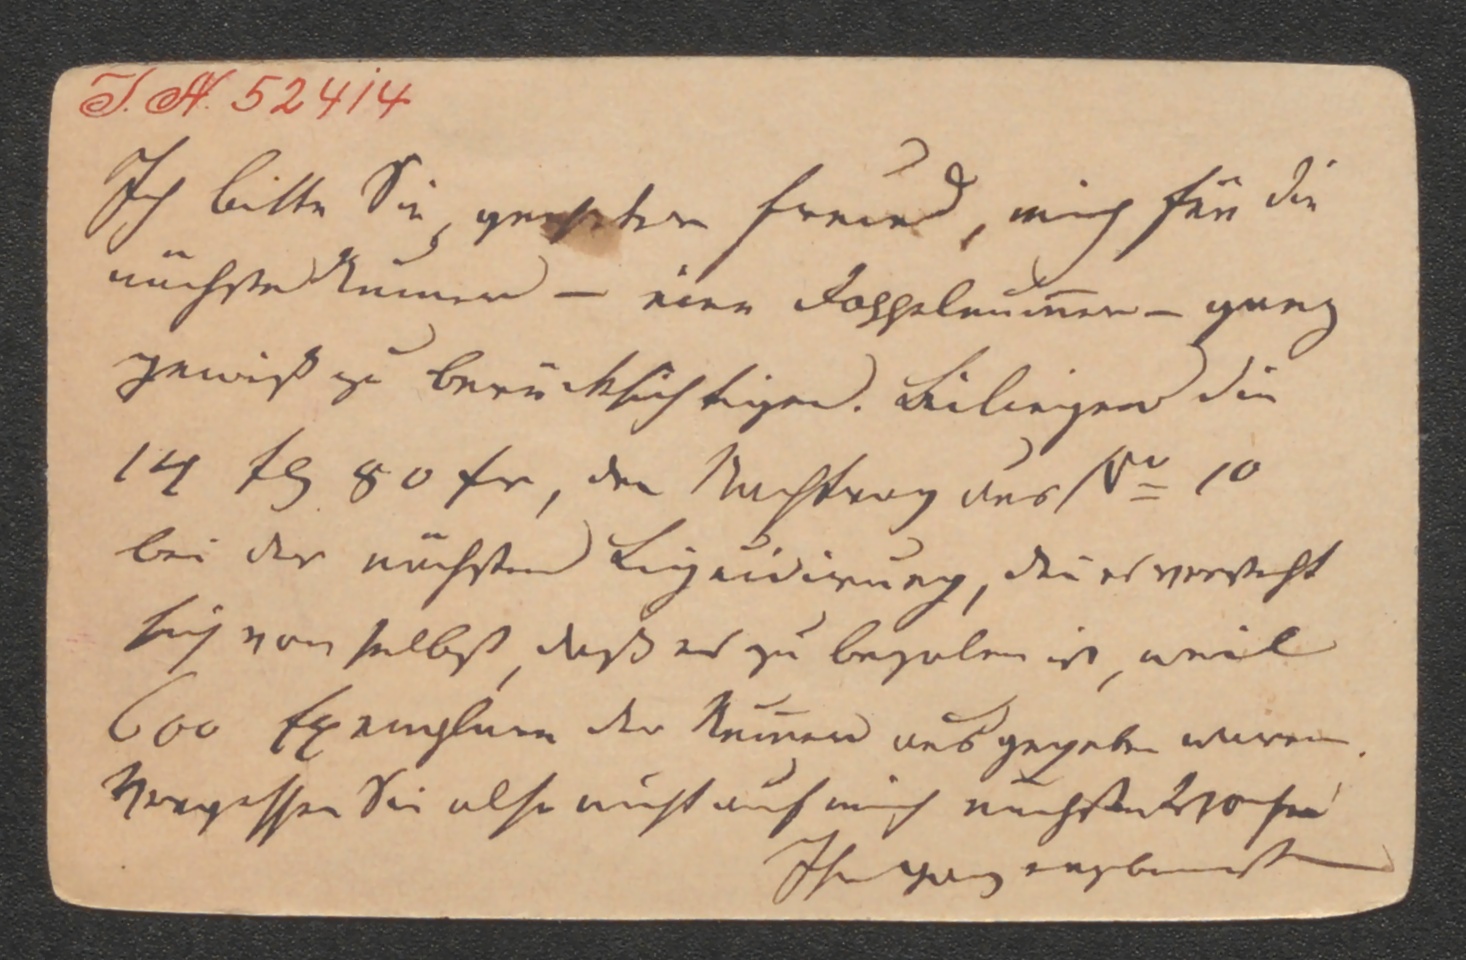 I. N. 52414
Ich bitte Sie, geehrter Freund, mich für die
nächste Numer — eine Doppelnum̅er — ganz
gewiß zu berücksichtigen. Beiliegend die
14 fl 80 kr, den Nachtrag aus No 10
bei der nächsten Liquidirung, die es versteht
sich von selbst, daß es zu bezalen ist, weil
600 Exemplare der Num̅er ausgegeben waren.
Vergessen Sie also nicht auf mich nächste Woche
Ihr ganz ergebenster